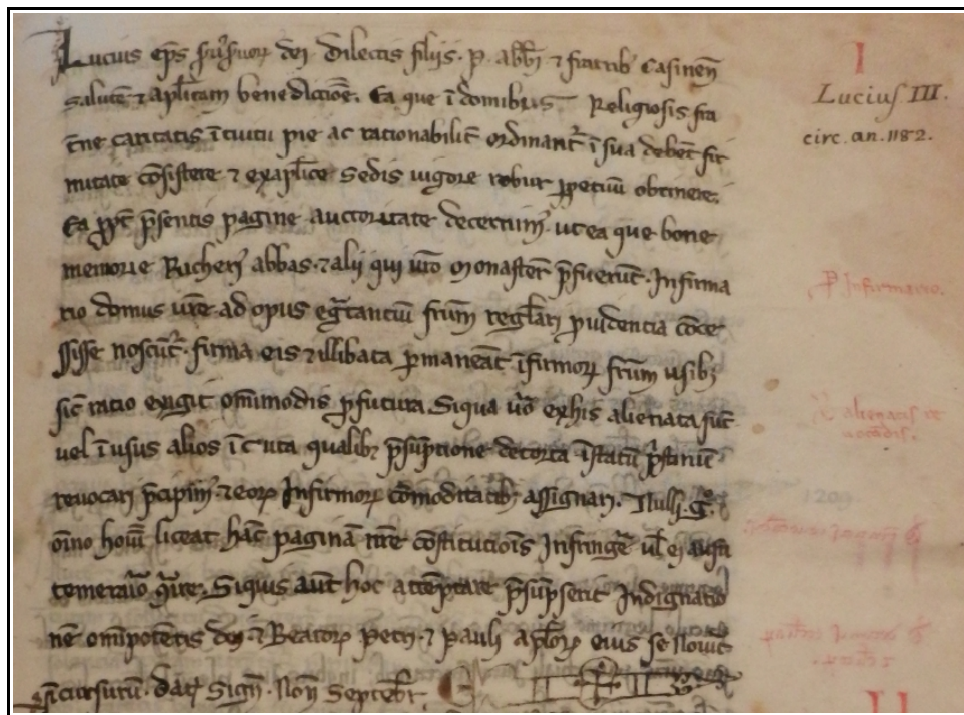 Lucius ep̅s seruus seruoꝝ dei Dilectis filijs. P. abb̅i ⁊ fratrib' Casinen̅
salute̅ ⁊ ap̅licam benedictio̅e̅. Ea que i̅ domibus Religiosis fra
t̅ne caritatis i̅tuitu pie ac rationabilit̅ ordinant̅ i̅ sua debe̅t fir
mitate co̅sistere ⁊ ex ap̅lice Sedis uigore robur ꝑpetuu̅ obtinere.
Ea ꝓpt̅ p̅sentis pagine auctoritate decernim' ut ea que bone
memorie Richeri' abbas ⁊ alij qui ur̅o Monaster̅ p̅fueru̅t. Infirma
rio domus ur̅e ad opus eg̅tantiu̅ fr̅um reg̅lari ꝓuidentia co̅ce
ssisse noscu̅t̅. firma eis ⁊ illibata ꝑmanea̅t i̅firmoꝝ fr̅um usib;
sic̅ ratio exigit om̅imodis ꝓfutura. Siqua u̅o ex his alienata su̅t
uel i̅ usus alios qualib; p̅su̅ptione detorta i̅ statu̅ p̅stinu̅
reuocari p̅cipim' ⁊ eoꝝ Infirmoꝝ co̅moditatib; assignari. Nulli g̊
o̅ino ho̅i̅u̅ liceat ha̅c pagina̅ nr̅e co̅stitucio̅is Infringe̅ ul̅ ei ausu
temerario ꝯ̅ire. Siquis aut̅ hoc atte̅ptare p̅su̅pserit Indignatio
ne̅ omipote̅tis dei ⁊ Beatoꝝ Petri ⁊ Pauli ap̅loꝝ eius se Nouit̅
i̅cursuru̅. dat̅ Sign̅. Non̅ Septe̅br̅.
I
Lucius III.
circ. an. 1182.
P̅ Infirmario.
alienatis re
uocādis.
II